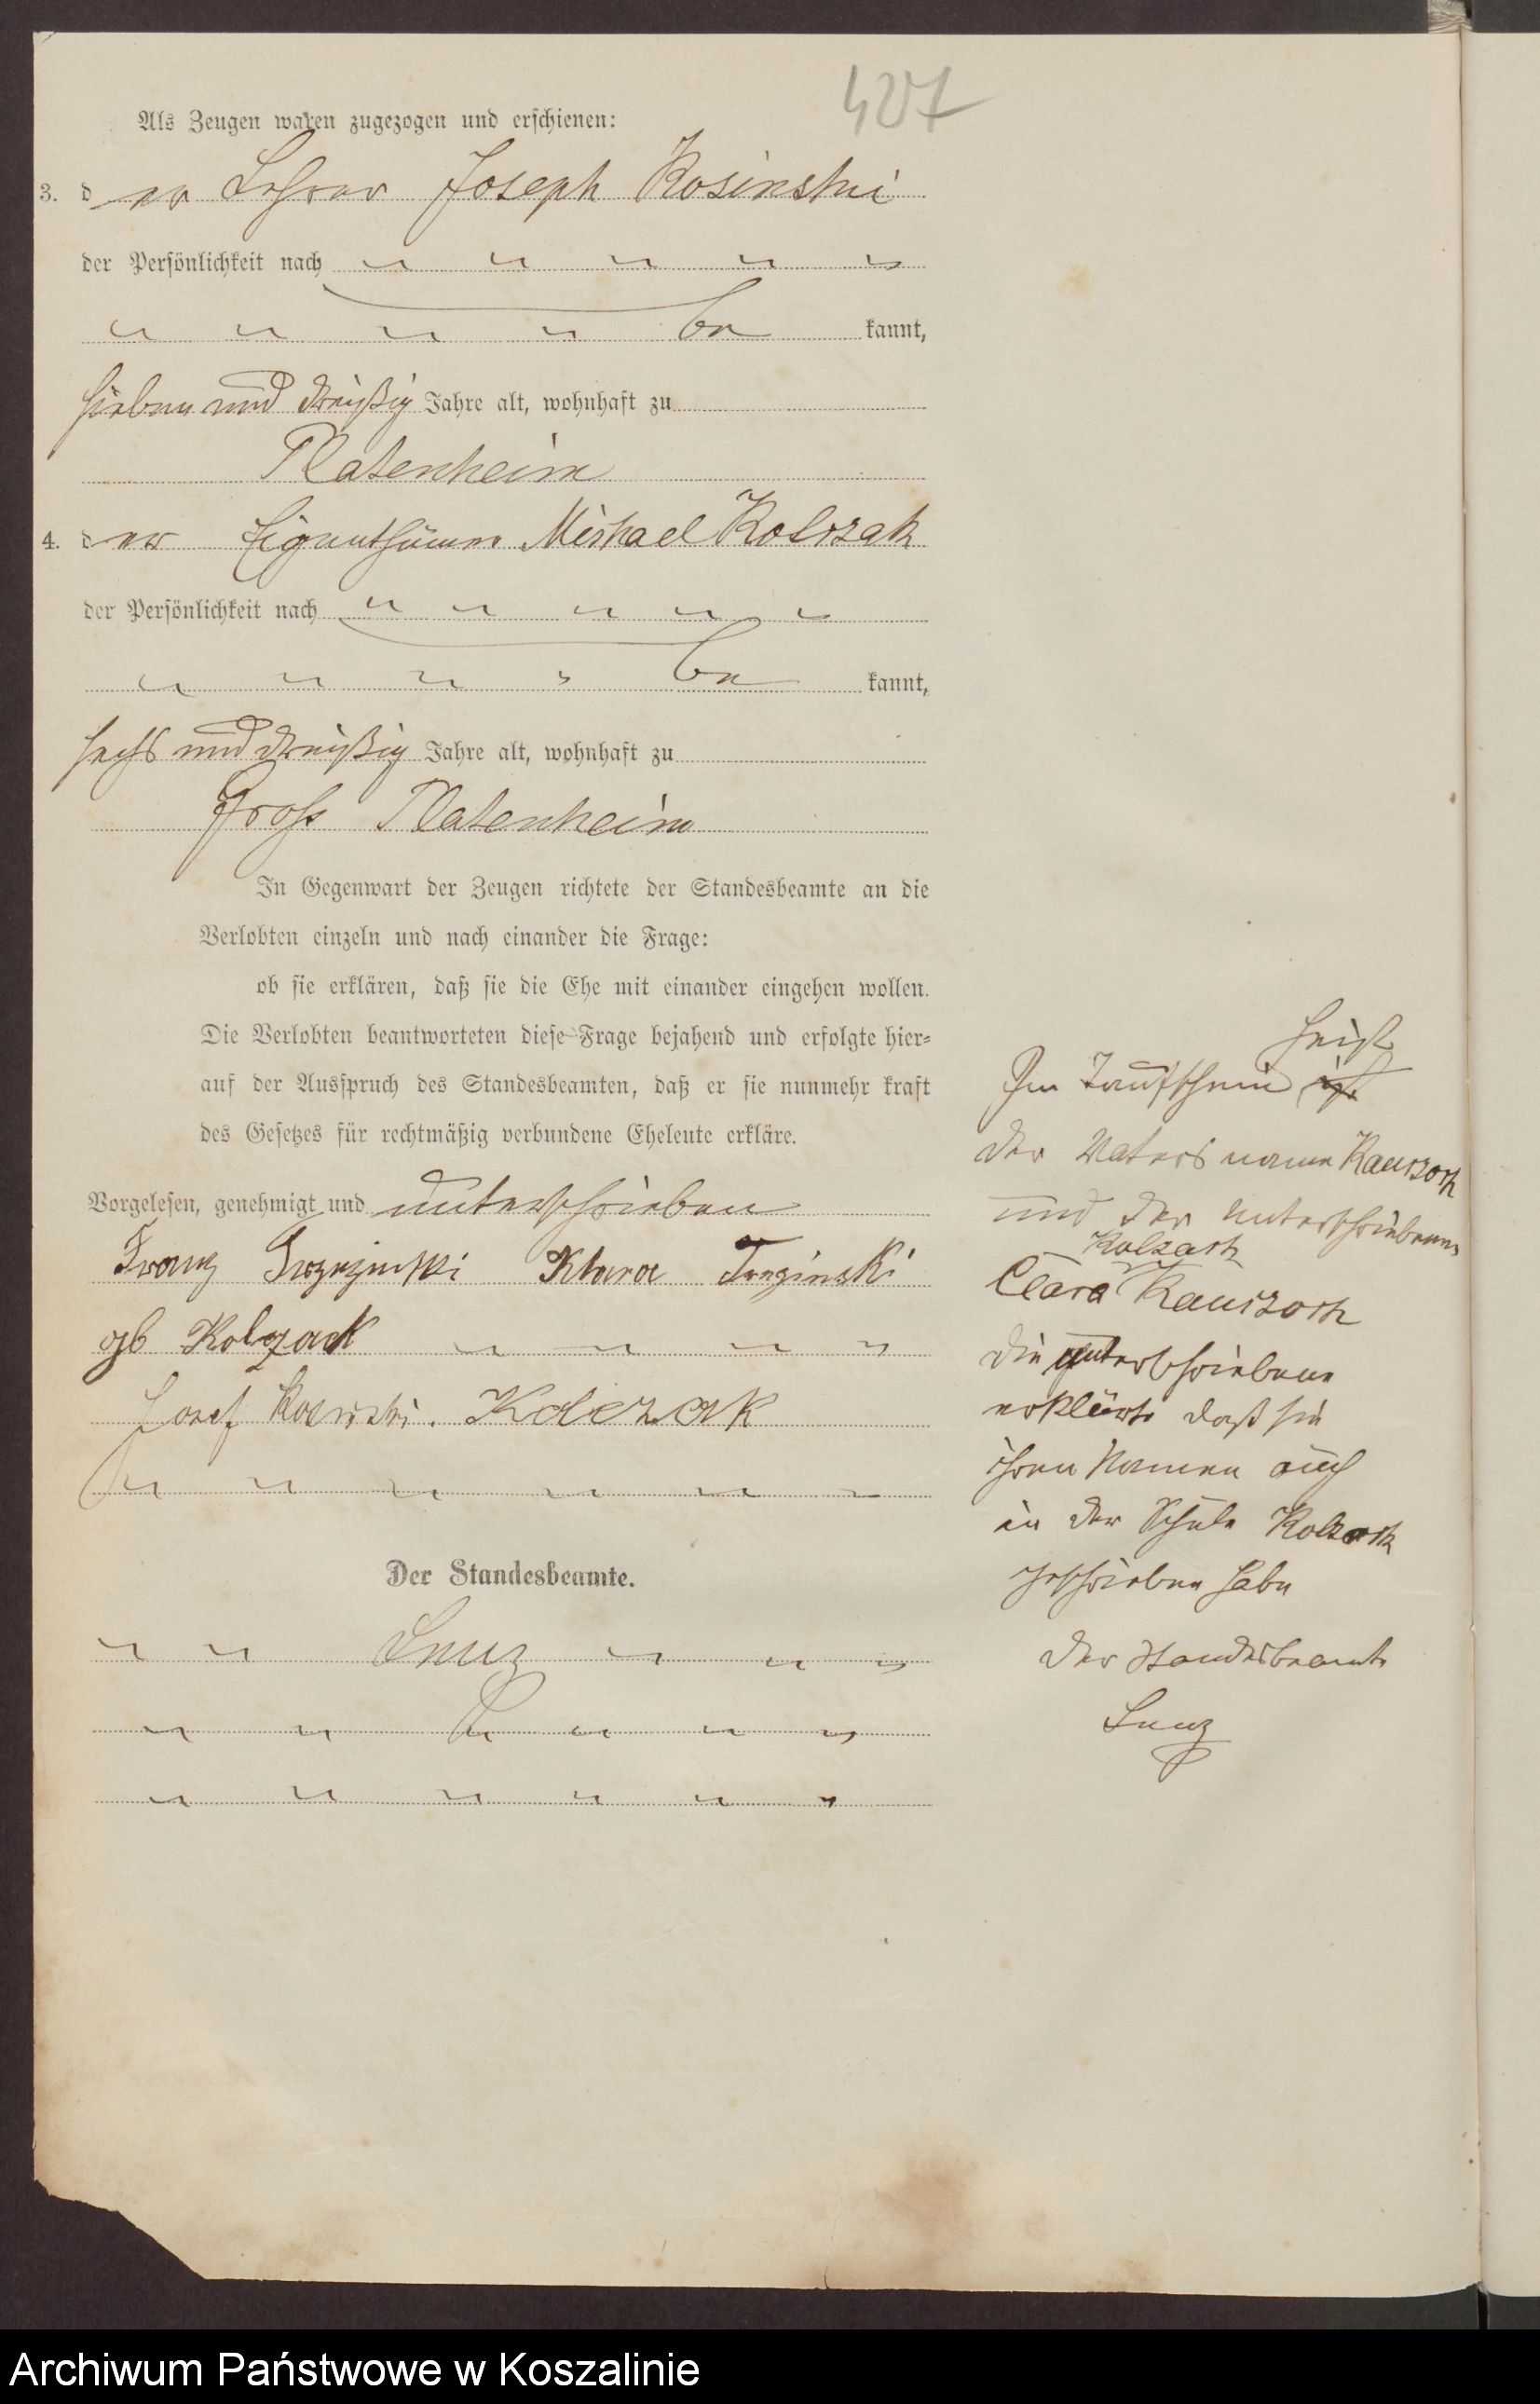 427
Als Zeugen waren zugezogen und erschienen:
3. der Lehrer Joseph Kosinski
der Persönlichkeit nach
be kannt,
sieben und dreißig Jahre alt, wohnhaft zu
Platenheim
4. der Eigenthümer Michael Kolczak
der Persönlichkeit nach
be kannt,
sechs und dreißig Jahre alt, wohnhaft zu
Gross Platenheim
In Gegenwart der Zeugen richtete der Standesbeamte an die
Verlobten einzeln und nach einander die Frage:
ob sie erklären, daß sie die Ehe mit einander eingehen wollen.
Die Verlobten beantworteten diese Frage bejahend und erfolgte hier-
auf der Ausspruch des Standesbeamten, daß er sie nunmehr kraft
des Gesetzes für rechtmäßig verbundene Eheleute erkläre.
Vorgelesen, genehmigt und unterschrieben
Franz Klara
gb Kolzack
Josef Kosinski. Kolczak
Der Standesbeamte.
heist
Im Taufschein ist
der Vatersname
und der Unterschriebenen
Kolzack
Clara
die unterschriebene
erklärte daß sie
ihren Namen auch
in der Schule Kolzack
geschrieben habe
Der Standesbeamte
Archiwum Państwowe w Koszalinie